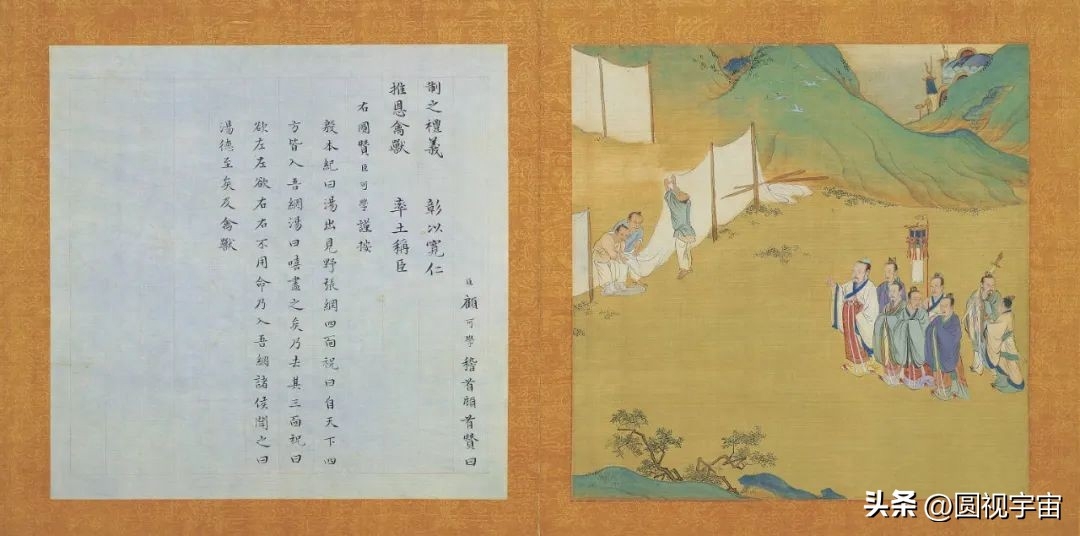 臣顧可學稽首頓首贊曰
制之禮義 彰以寬仁
推恩禽獸 率土稱臣
右圖贊臣可學謹按
殷本紀曰湯出見野張網四面祝曰自天下四
方皆入吾網湯曰嘻盡之矣乃去其三面祝曰
欲左左欲右右不用命乃入吾網諸侯聞之曰
湯德至矣及禽獸
头条 @圆视宇宙